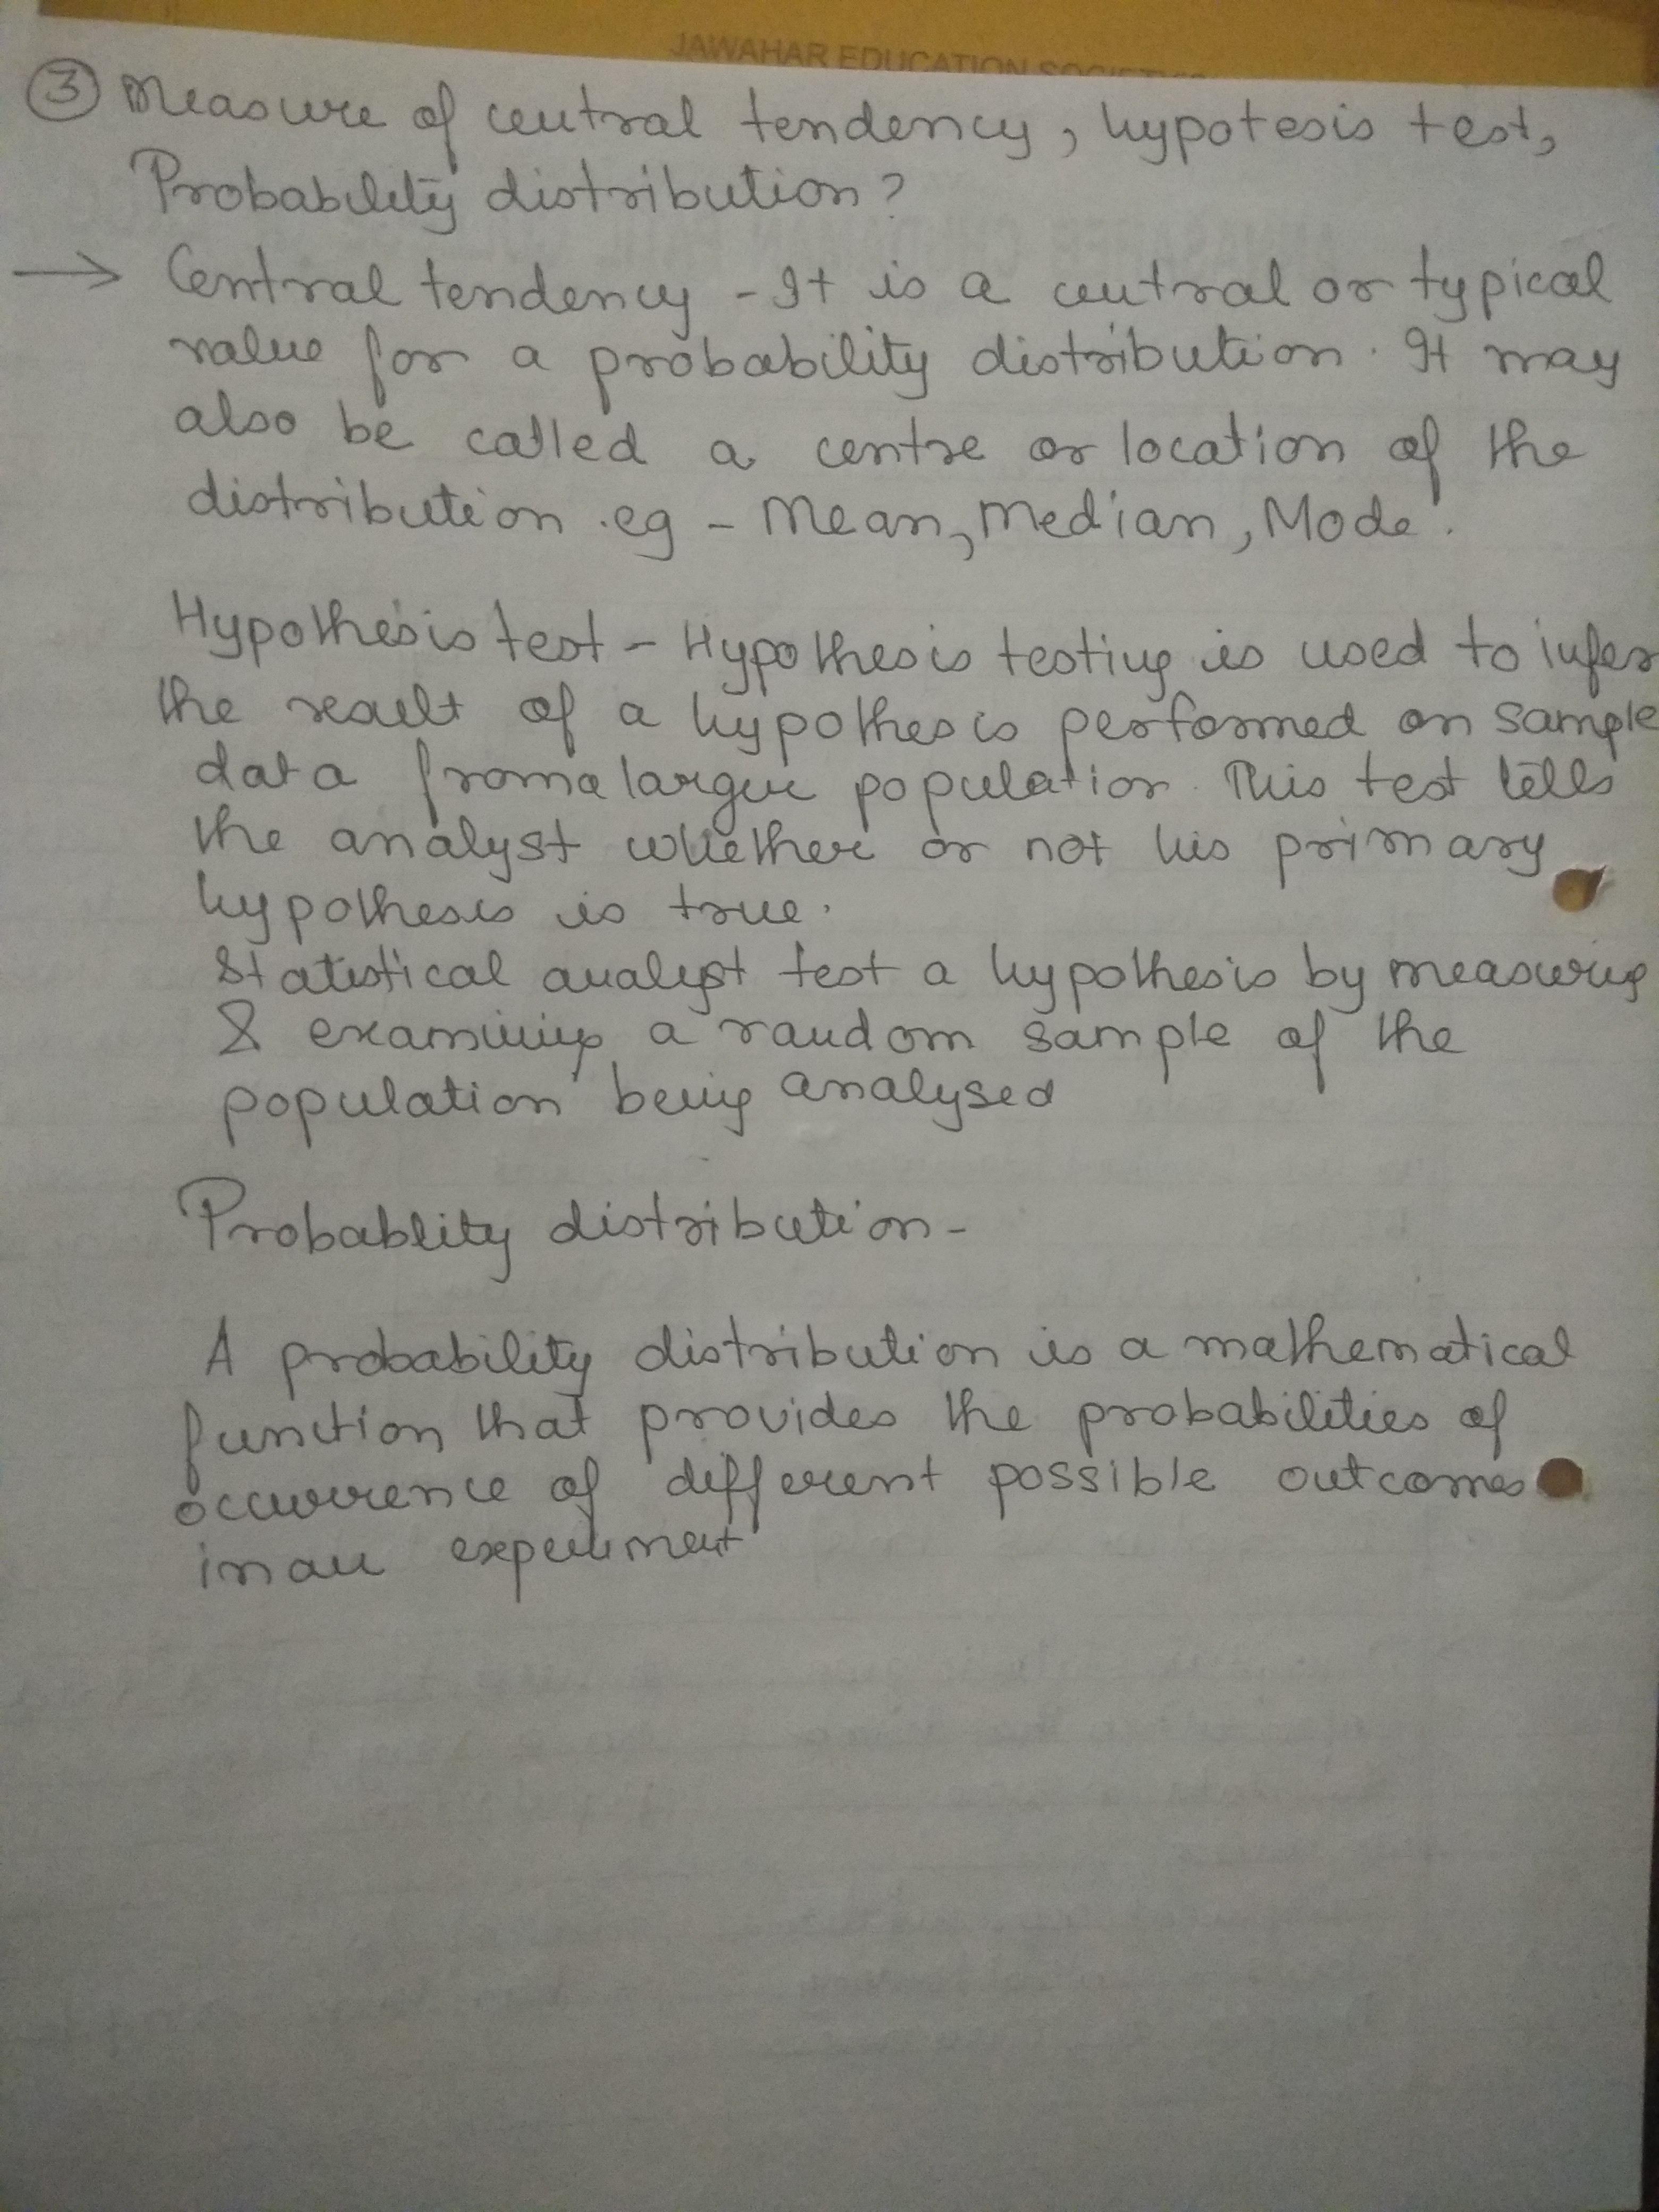 JAWAHAR EDUCATION
③ Measure of central tendency, hypotesis test,
Probability distribution?
→ Central tendency - It is a central or typical
value for a probability distribution. It may
also be called a centre or location of the
distribution .eg - Mean, Median, Mode.
Hypothesis test - Hypothesis testing is used to infer
the result of a hypothesis performed on sample
data from a larger population. This test tells
the analyst whether or not his primary
hypothesis is true.
Statistical analyst test a hypothesis by measuring
& examining a random sample of the
population being analysed
Probablity distribution -
A probability distribution is a mathematical
function that provides the probabilities of
occurrence of different possible outcomes
in an experiment